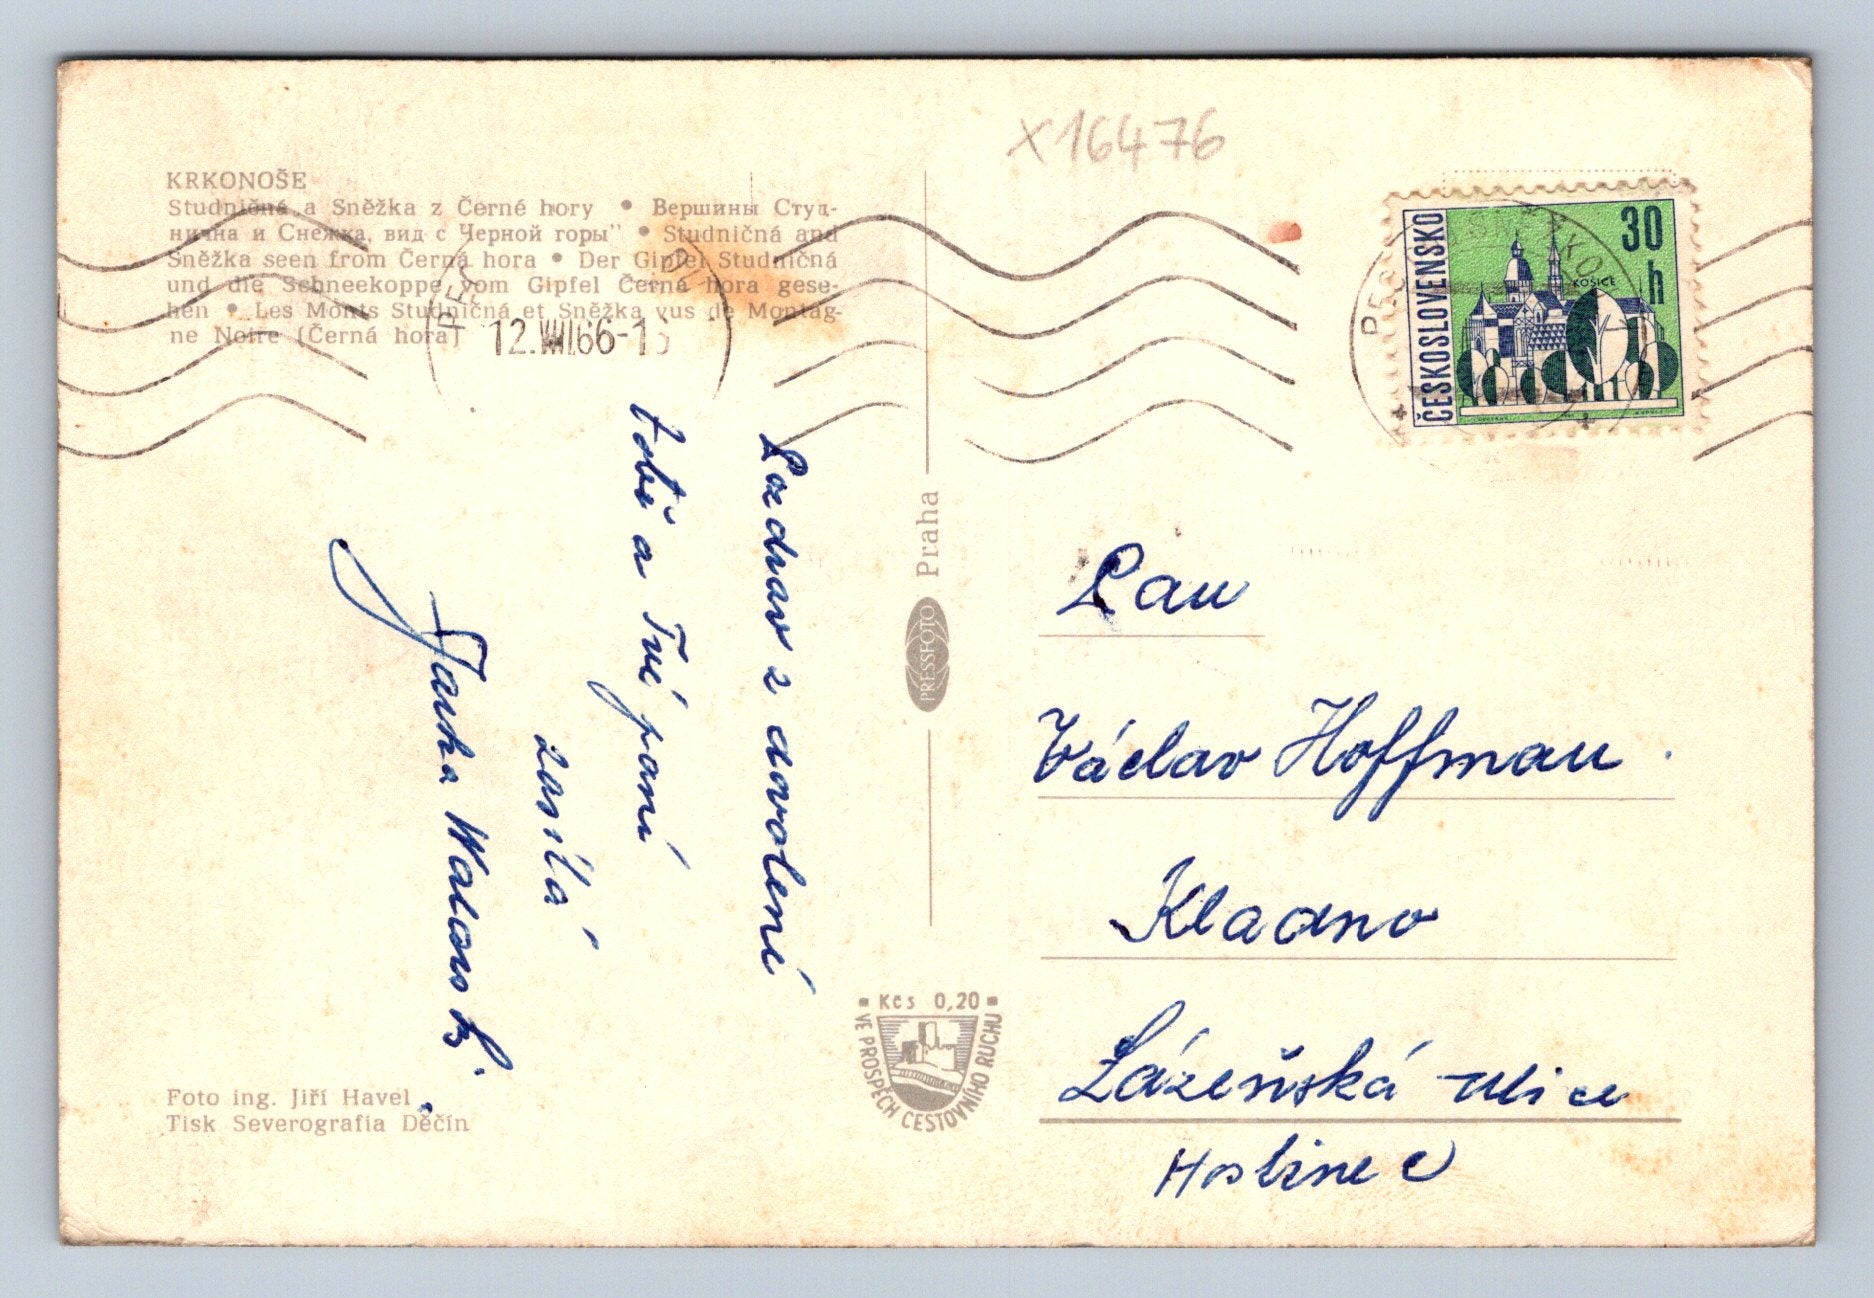 X16476
KRKONOŠE
Studničná a Sněžka z Černé hory • Вершины Студ-
нична и Снежка, вид с Черной горы" • Studničná and
Sněžka seen from Černá hora • Der Gipfel Studničná
und die Schneekoppe vom Gipfel Černá hora gese-
hen • Les Monts Studničná et Sněžka vus de Montag-
ne Noire (Černá hora)
12.VIII.66-1
ČESKOSLOVENSKO
30
h
KOŠICE
Pozdrav z dovolení
Tobě a Tvé paní
zasílá
Praha
PRESSFOTO
Pan
Václav Hoffman
Kladno
Lázeňská ulice
Hostinec
Kčs 0,20
VE PROSPĚCH CESTOVNÍHO RUCHU
Foto ing. Jiří Havel
Tisk Severografia Děčín